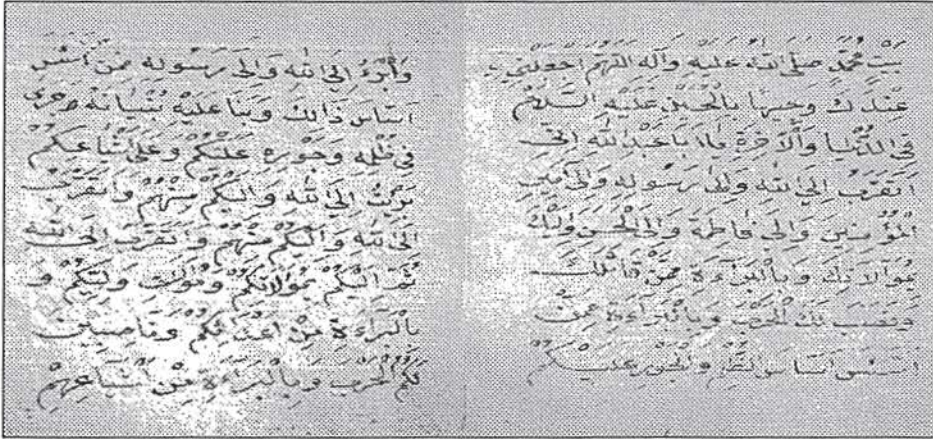 بَيْتِ مُحَمَّدٍ صَلَّى اللهُ عَلَيْهِ وَآلِهِ اَللّٰهُمَّ اجْعَلْنِي
عِنْدَكَ وَجِيهًا بِالْحُسَيْنِ عَلَيْهِ السَّلَامُ
فِي الدُّنْيَا وَالْآخِرَةِ يَا اَبَا عَبْدِ اللهِ اِنِّي
اَتَقَرَّبُ اِلَى اللهِ وَاِلَى رَسُولِهِ وَاِلَى اَمِيرِ
الْمُؤْمِنِينَ وَاِلَى فَاطِمَةَ وَاِلَى الْحَسَنِ وَاِلَيْكَ
بِمُوَالَاتِكَ وَبِالْبَرَاءَةِ مِمَّنْ قَاتَلَكَ
وَنَصَبَ لَكَ الْحَرْبَ وَبِالْبَرَاءَةِ مِمَّنْ
اَسَّسَ اَسَاسَ الظُّلْمِ وَالْجَوْرِ عَلَيْكُمْ
وَاَبْرَءُ اِلَى اللهِ وَاِلَى رَسُولِهِ مِمَّنْ اَسَّسَ
اَسَاسَ ذَالِكَ وَبَنَا عَلَيْهِ بُنْيَانَهُ وَجَرَى
فِي ظُلْمِهِ وَجَوْرِهِ عَلَيْكُمْ وَعَلَى اَشْيَاعِكُمْ
بَرِئْتُ اِلَى اللهِ وَاِلَيْكُمْ مِنْهُمْ وَاَتَقَرَّبُ
اِلَى اللهِ وَاِلَيْكُمْ مِنْهُمْ وَاَتَقَرَّبُ اِلَى اللهِ
ثُمَّ اِلَيْكُمْ بِمُوَالَاتِكُمْ وَمُوَالَاتِ وَلِيِّكُمْ وَ
بِالْبَرَاءَةِ مِنْ اَعْدَائِكُمْ وَنَاصِبِينَ
لَكُمُ الْحَرْبَ وَبِالْبَرَاءَةِ مِنْ اَشْيَاعِهِمْ